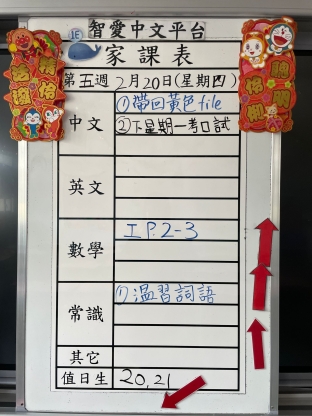 1E 智愛中文平台
家課表
第五週 2月20日(星期四)
中文 ①帶回黃色file
②下星期一考口試
英文
數學 工P.2-3
常識 ①溫習詞語
其它
值日生 20,21
聰明伶俐